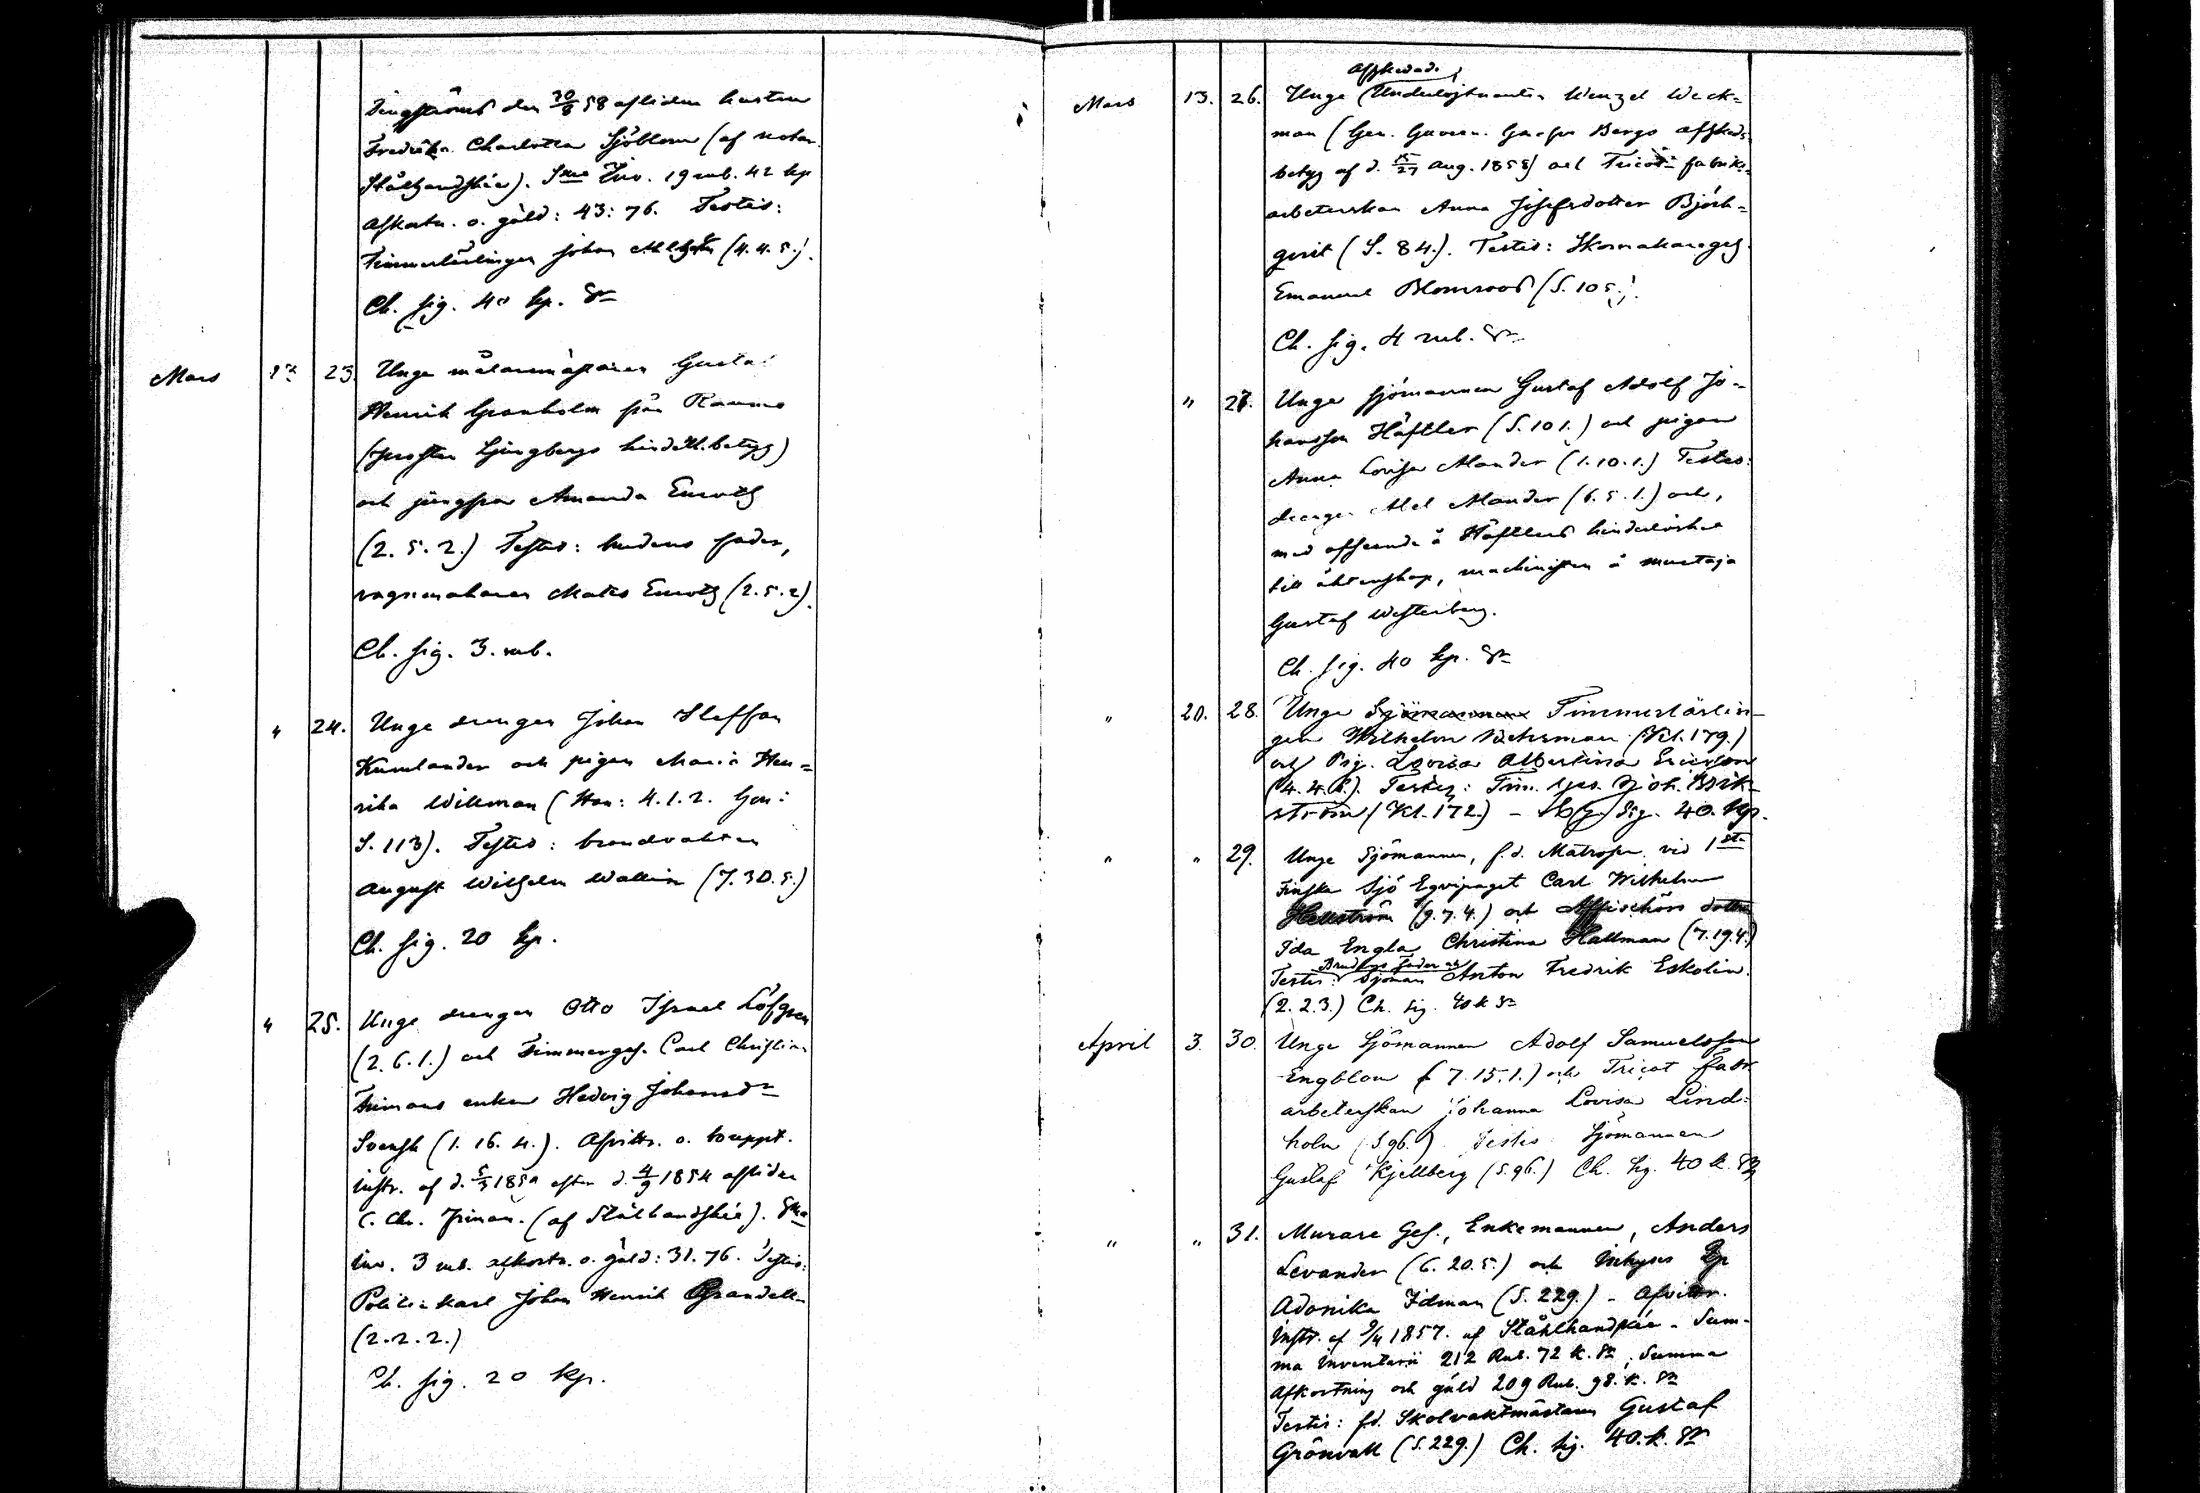 den 30/8 58 afliden hustru
Fredrika Charlotta Sjöblom (af notar.
Stålhandske). Sma Inv. 19 rub. 42 kp
Afkortn. o. gäld: 43: 76. Testis:
Timmerlärlingen Johan (4.4.5.)
Ch. sig. 40 kp. Sr
Mars 23. Unge målaremästaren Gustaf
Henrik Granholm från Raumo
(prosten Ljungbergs betyg)
och jungfru Amanda Euroth
(2.5.2.) Testis: brudens fader,
vagnmakaren Mats Euroth (2.5.2).
Ch. sig. 3. rub.
" 24. Unge drengen Johan Steffan
Kumlander och pigan Maria Hen=
rika Willman (Han: 4.1.2. hon:
S. 113). Testis: brandvakten
August Wilhelm Wallin (7.30.5.)
Ch. sig. 20 kp.
" 25. Unge drengen Otto Israel Löfgren
(2.6.1.) och Timmerges. Carl Christian
enka Hedvig Johansdr
Svensk (1. 16. 4.). Afvittr. o. bouppt.
instr. af d. efter d. 4/9 1854 afledne
C. Chr. (af Stålhandske). Sma
inv. 3 rub. afkortn. o. gäld: 31.76. Testis:
Politiekarl Johan Henrik Grandell
(2.2.2.)
Ch. sig. 20 kp.
Afskedad.
Mars 13. 26. Unge Underlöjtnanten Wenzel Weck=
man (Gen. Guvern. Bergs afskeds
betyg af d. 15/27 Aug. 1858) och Tricot-fabriks-
arbeterskan Anna Josefsdotter Björk-
qvist (S. 84.). Testis: Skomakareges.
Emanuel Blomroos (S. 105.).
Ch. sig. 4 rub. Sr
" 27. Unge sjömannen Gustaf Adolf Jo-
hansson Häftler (S. 101.) och pigan
Anna Lovisa Alander (1.10.1.) Testes:
drengen Abel Alander (6.5.1.) och,
med afseende å Häftlers hinderlöshet
till äktenskap, machinisten å mustaja
Gustaf Westerberg.
Ch. sig. 40 kp. Sr
" 20. 28. Unge Sjömannen Timmerlärlin-
gen Wilhelm (Kl. 179.)
och Pig. Lovisa Albertina Ericsson
(4.4.6.). Testis: Tim. ges. Joh. Brik-
ström (Kl. 172.) - Sig. 40. kp.
" " 29. Unge Sjömannen, f.d. Matrosen vid 1sta
Finska Sjö Equipaget Carl Wilhelm
Hellström (9.7.4.) och Affischörs dottern
Ida Engla Christina Hallman (7.19.4.)
Brudens fader och
Testis: Sjöman Anton Fredrik Eskolin.
(2.2.3.) Ch. sig. 40 k Sr
April 3. 30. Unge Sjömannen Adolf Samuelsson
Engblom (7.15.1.) och Tricot Fabr.
arbeterskan Johanna Lovisa Lind-
holm (S 96.) Testis Sjömannen
Gustaf Kjellberg (S. 96.) Ch. sig. 40 k. Sr
" " 31. Murare Ges., Enkemannen, Anders
Levander (6. 20.5.) och Inhyses Pig
Adonika Idman (S. 229.) - Afvittr.
Instr. af 9/4 1857. af Stålhandske - Sum-
ma inventarii 212 Rub. 72 k. Sr; Summa
Afkortning och gäld 209 Rub. 98. k. Sr
Testis: fd. Skolvaktmästaren Gustaf
Grönvall (S. 229.) Ch. sig. 40. k. Sr